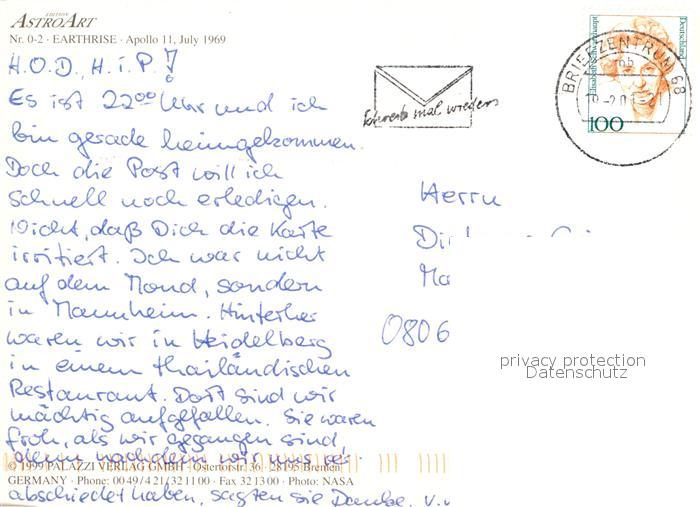 EDITION
ASTROART
Nr. 0-2 · EARTHRISE · Apollo 11, July 1969
H.O.D., H.i.P.!
Es ist 22⁰⁰ Uhr und ich
bin gerade heimgekommen.
Doch die Post will ich
schnell noch erledigen.
Nicht, daß Dich die Karte
irritiert. Ich war nicht
auf dem Mond, sondern
in Mannheim. Hinterher
waren wir in Heidelberg
in einem thailändischen
Restaurant. Dort sind wir
mächtig aufgefallen. Sie waren
froh, als wir gegangen sind,
denn nachdem wir uns ver-
© 1999 PALAZZI VERLAG GMBH · Ostertorstr. 36 · 28195 Bremen
GERMANY · Phone: 00 49/4 21/32 11 00 · Fax 32 13 00 · Photo: NASA
abschiedet haben, sagten sie Danke.
Schreib mal wieder
BRIEFZENTRUM 68
Deutschland
100
Herrn
0806
privacy protection
Datenschutz